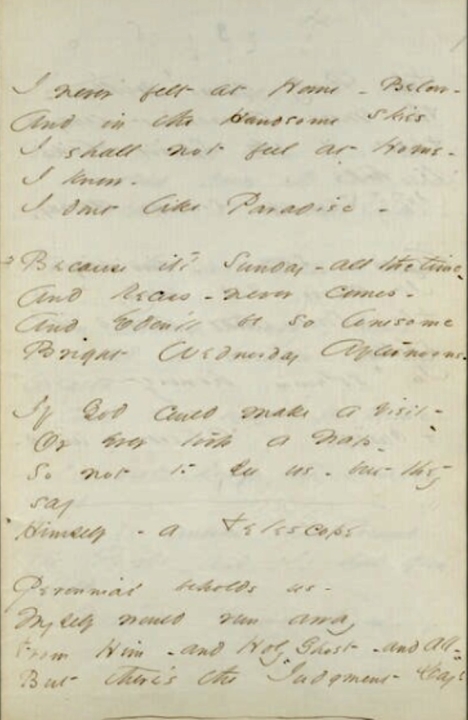 I never felt at Home - Below -
And in the Handsome Skies
I shall not feel at Home -
I know -
I dont like Paradise -
Because it's Sunday - all the time
And Recess - never comes -
And Eden'll be so lonesome
Bright Wednesday Afternoons
If God could make a visit -
Or ever took a Nap -
So not to see us - but they
say
Himself - a Telescope
Perennial beholds us -
Myself would run away
From Him - and Holy Ghost - and All -
But there's the "Judgment Day"